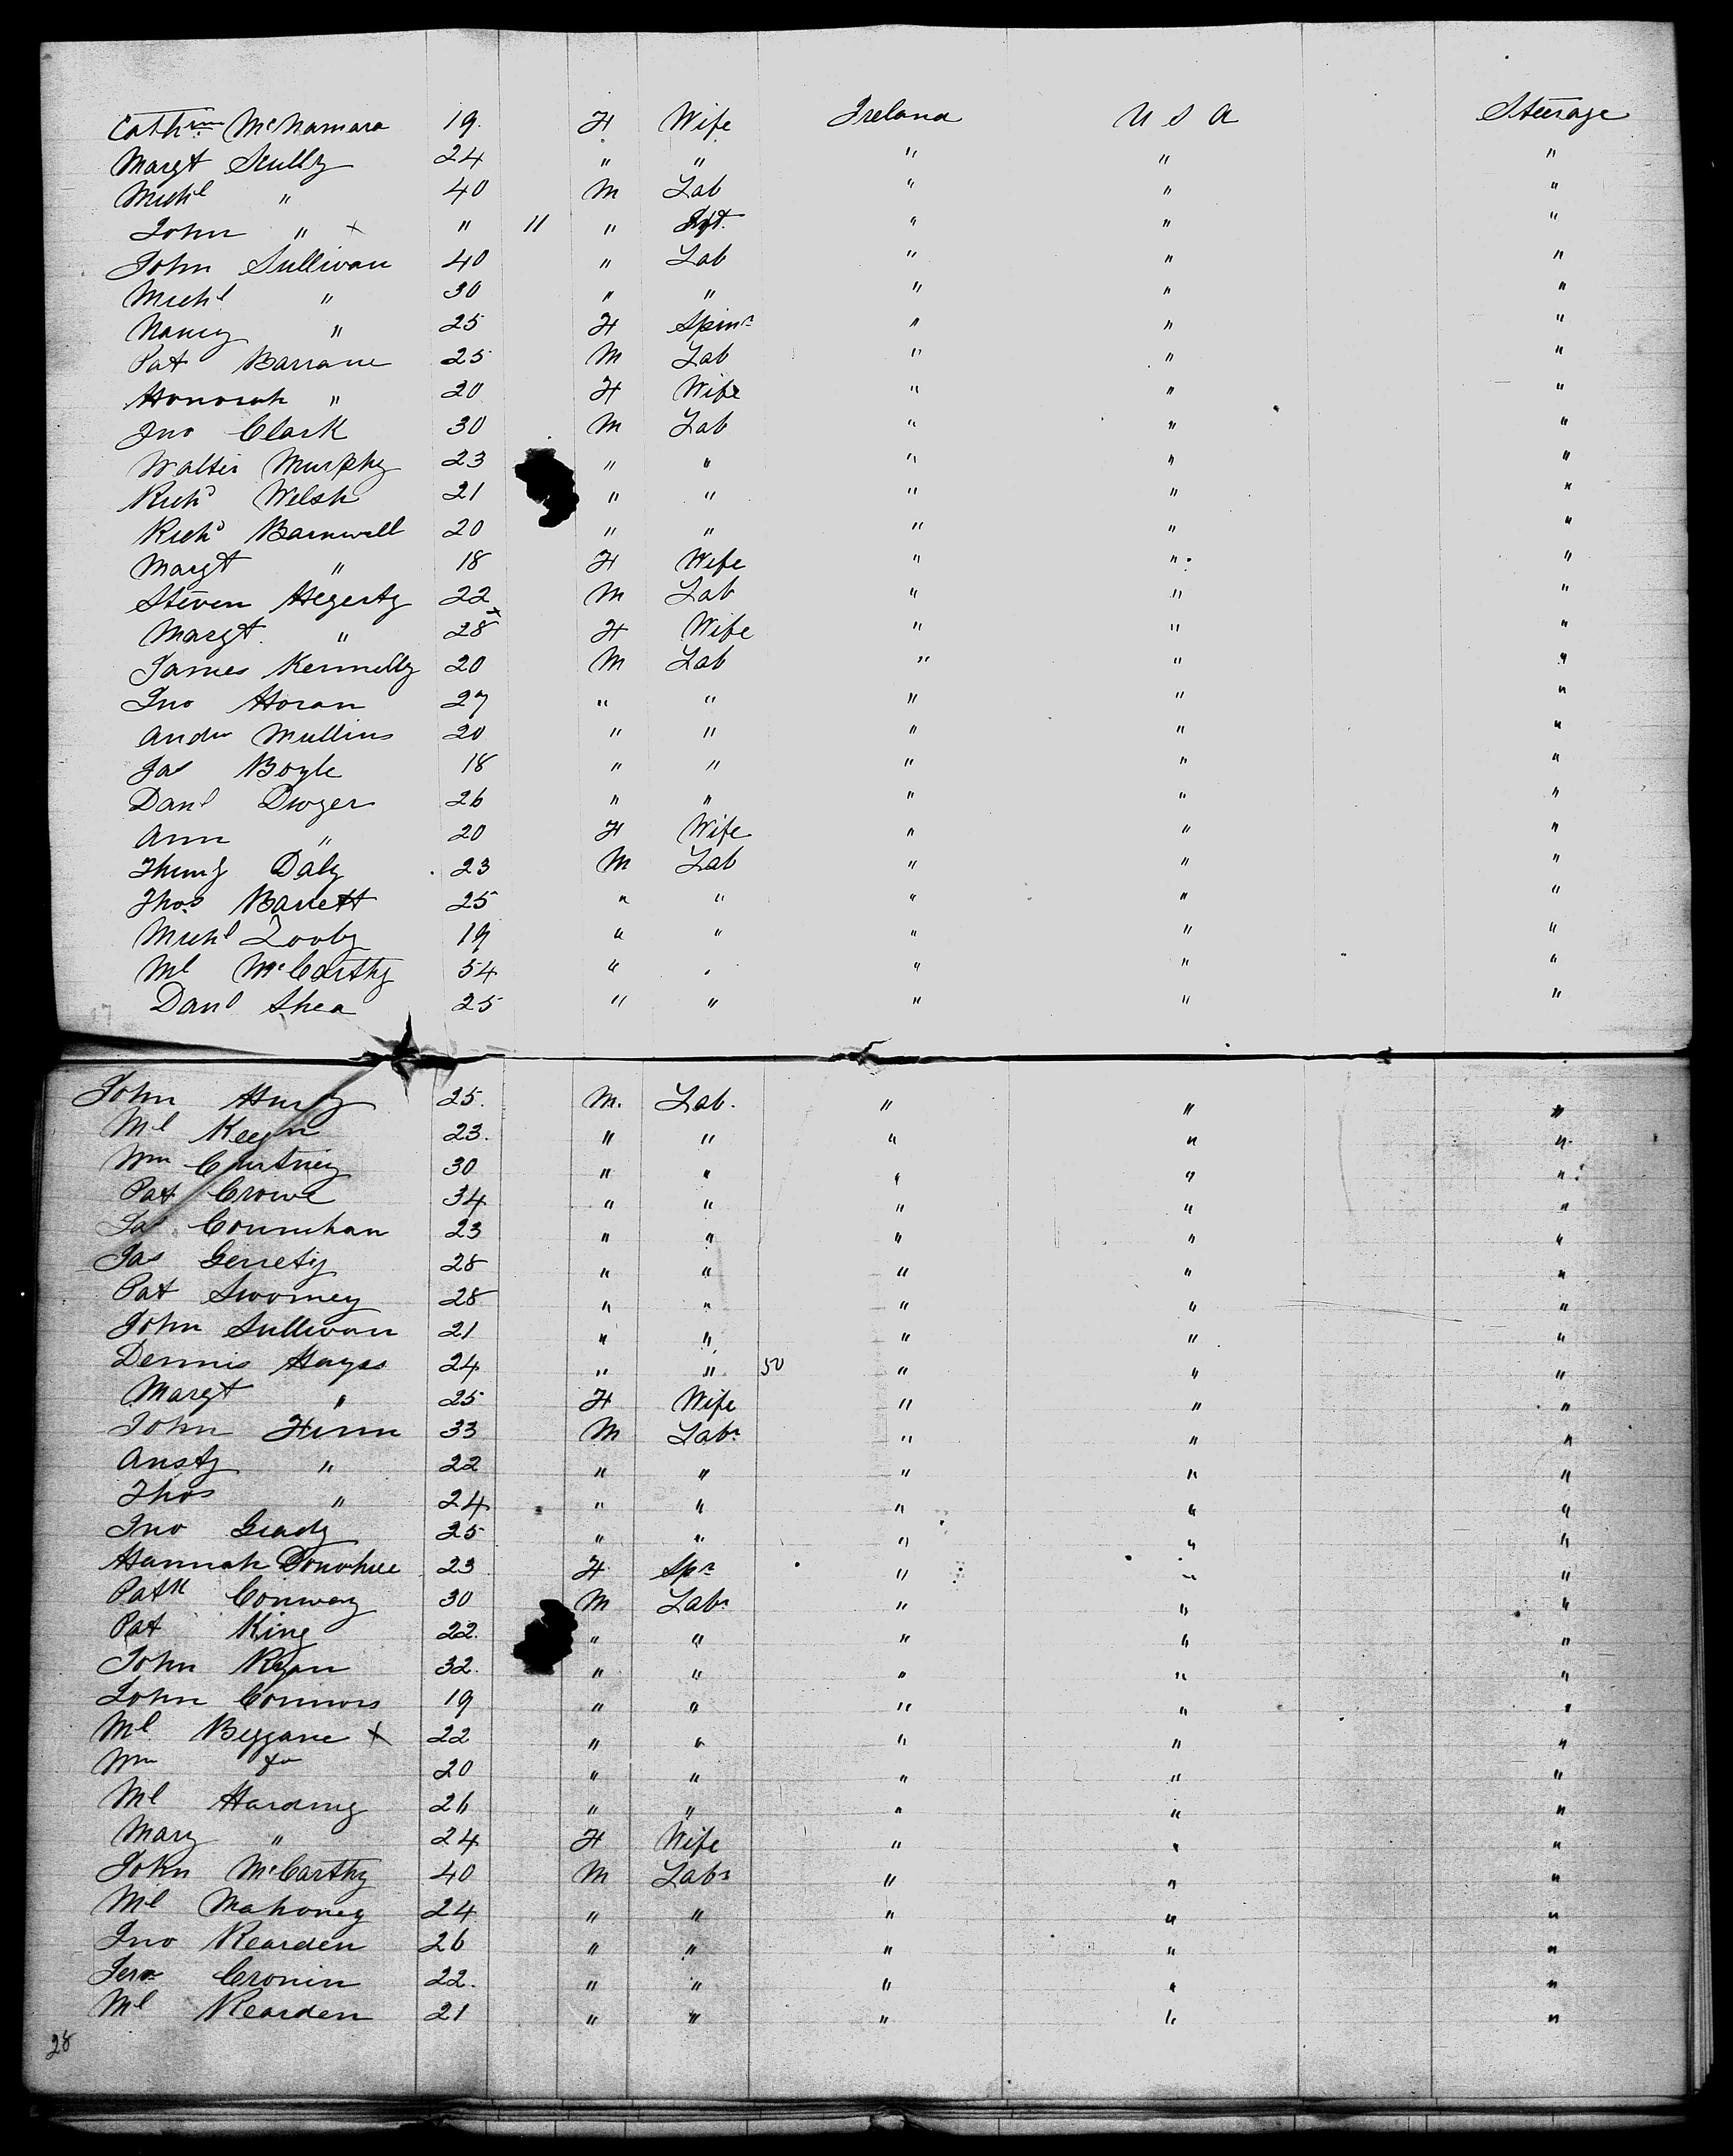 Cathrne McNamara 19. F Wife Ireland U S A Steerage
Margt Scully 24 " " " " "
Michl " 40 M Lab " " "
John " x " 11 " Inft. " " "
John Sullivan 40 " Lab " " "
Michl " 30 " " " " "
Nancy " 25 F Spinr " " "
Pat Barrane 25 M Lab " " "
Honorah " 20 F Wife " " "
Jno Clark 30 M Lab " " "
Walter Murphy 23 " " " " "
Richd Welsh 21 " " " " "
Richd Barnwell 20 " " " " "
Margt " 18 F Wife " " "
Steven Hegerty 22 M Lab " " "
Margt. " 28 x F Wife " " "
James Kennelly 20 M Lab " " "
Jno Horan 27 " " " " "
Andw Mullins 20 " " " " "
Jas Boyle 18 " " " " "
Danl Dwyer 26 " " " " "
Ann " 20 F Wife " " "
Daly 23 M Lab " " "
Thos Barrett 25 " " " " "
Michl Looby 19 " " " " "
Ml McCarthy 54 " " " " "
Danl Shea 25 " " " " "
John 25. M. Lab. " " "
Ml 23. " " " " "
Wm Courtney 30 " " " " "
Pat Crowe 34 " " " " "
Jas Counihan 23 " " " " "
Jas Gerrety 28 " " " " "
Pat Swomey 28 " " " " "
John Sullivan 21 " " " " "
Dennis Hayes 24 " " 50 " " "
Margt " 25 F Wife " " "
John Finn 33 M Labr " " "
Ansty " 22 " " " " "
Thos " 24 " " " " "
Jno Grady 25 " " " " "
Hannah Donohue 23 F Spr " " "
Patk Conway 30 M Labr " " "
Pat King 22. " " " " "
John Ryan 32. " " " " "
John Connors 19 " " " " "
Ml Beggane x 22 " " " " "
Wm do 20 " " " " "
Ml Harding 26 " " " " "
Mary " 24 F Wife " " "
John McCarthy 40 M Labr " " "
Ml Mahoney 24 " " " " "
Jno Rearden 26 " " " " "
Jera Cronin 22. " " " " "
Ml Rearden 21 " " " " "
28